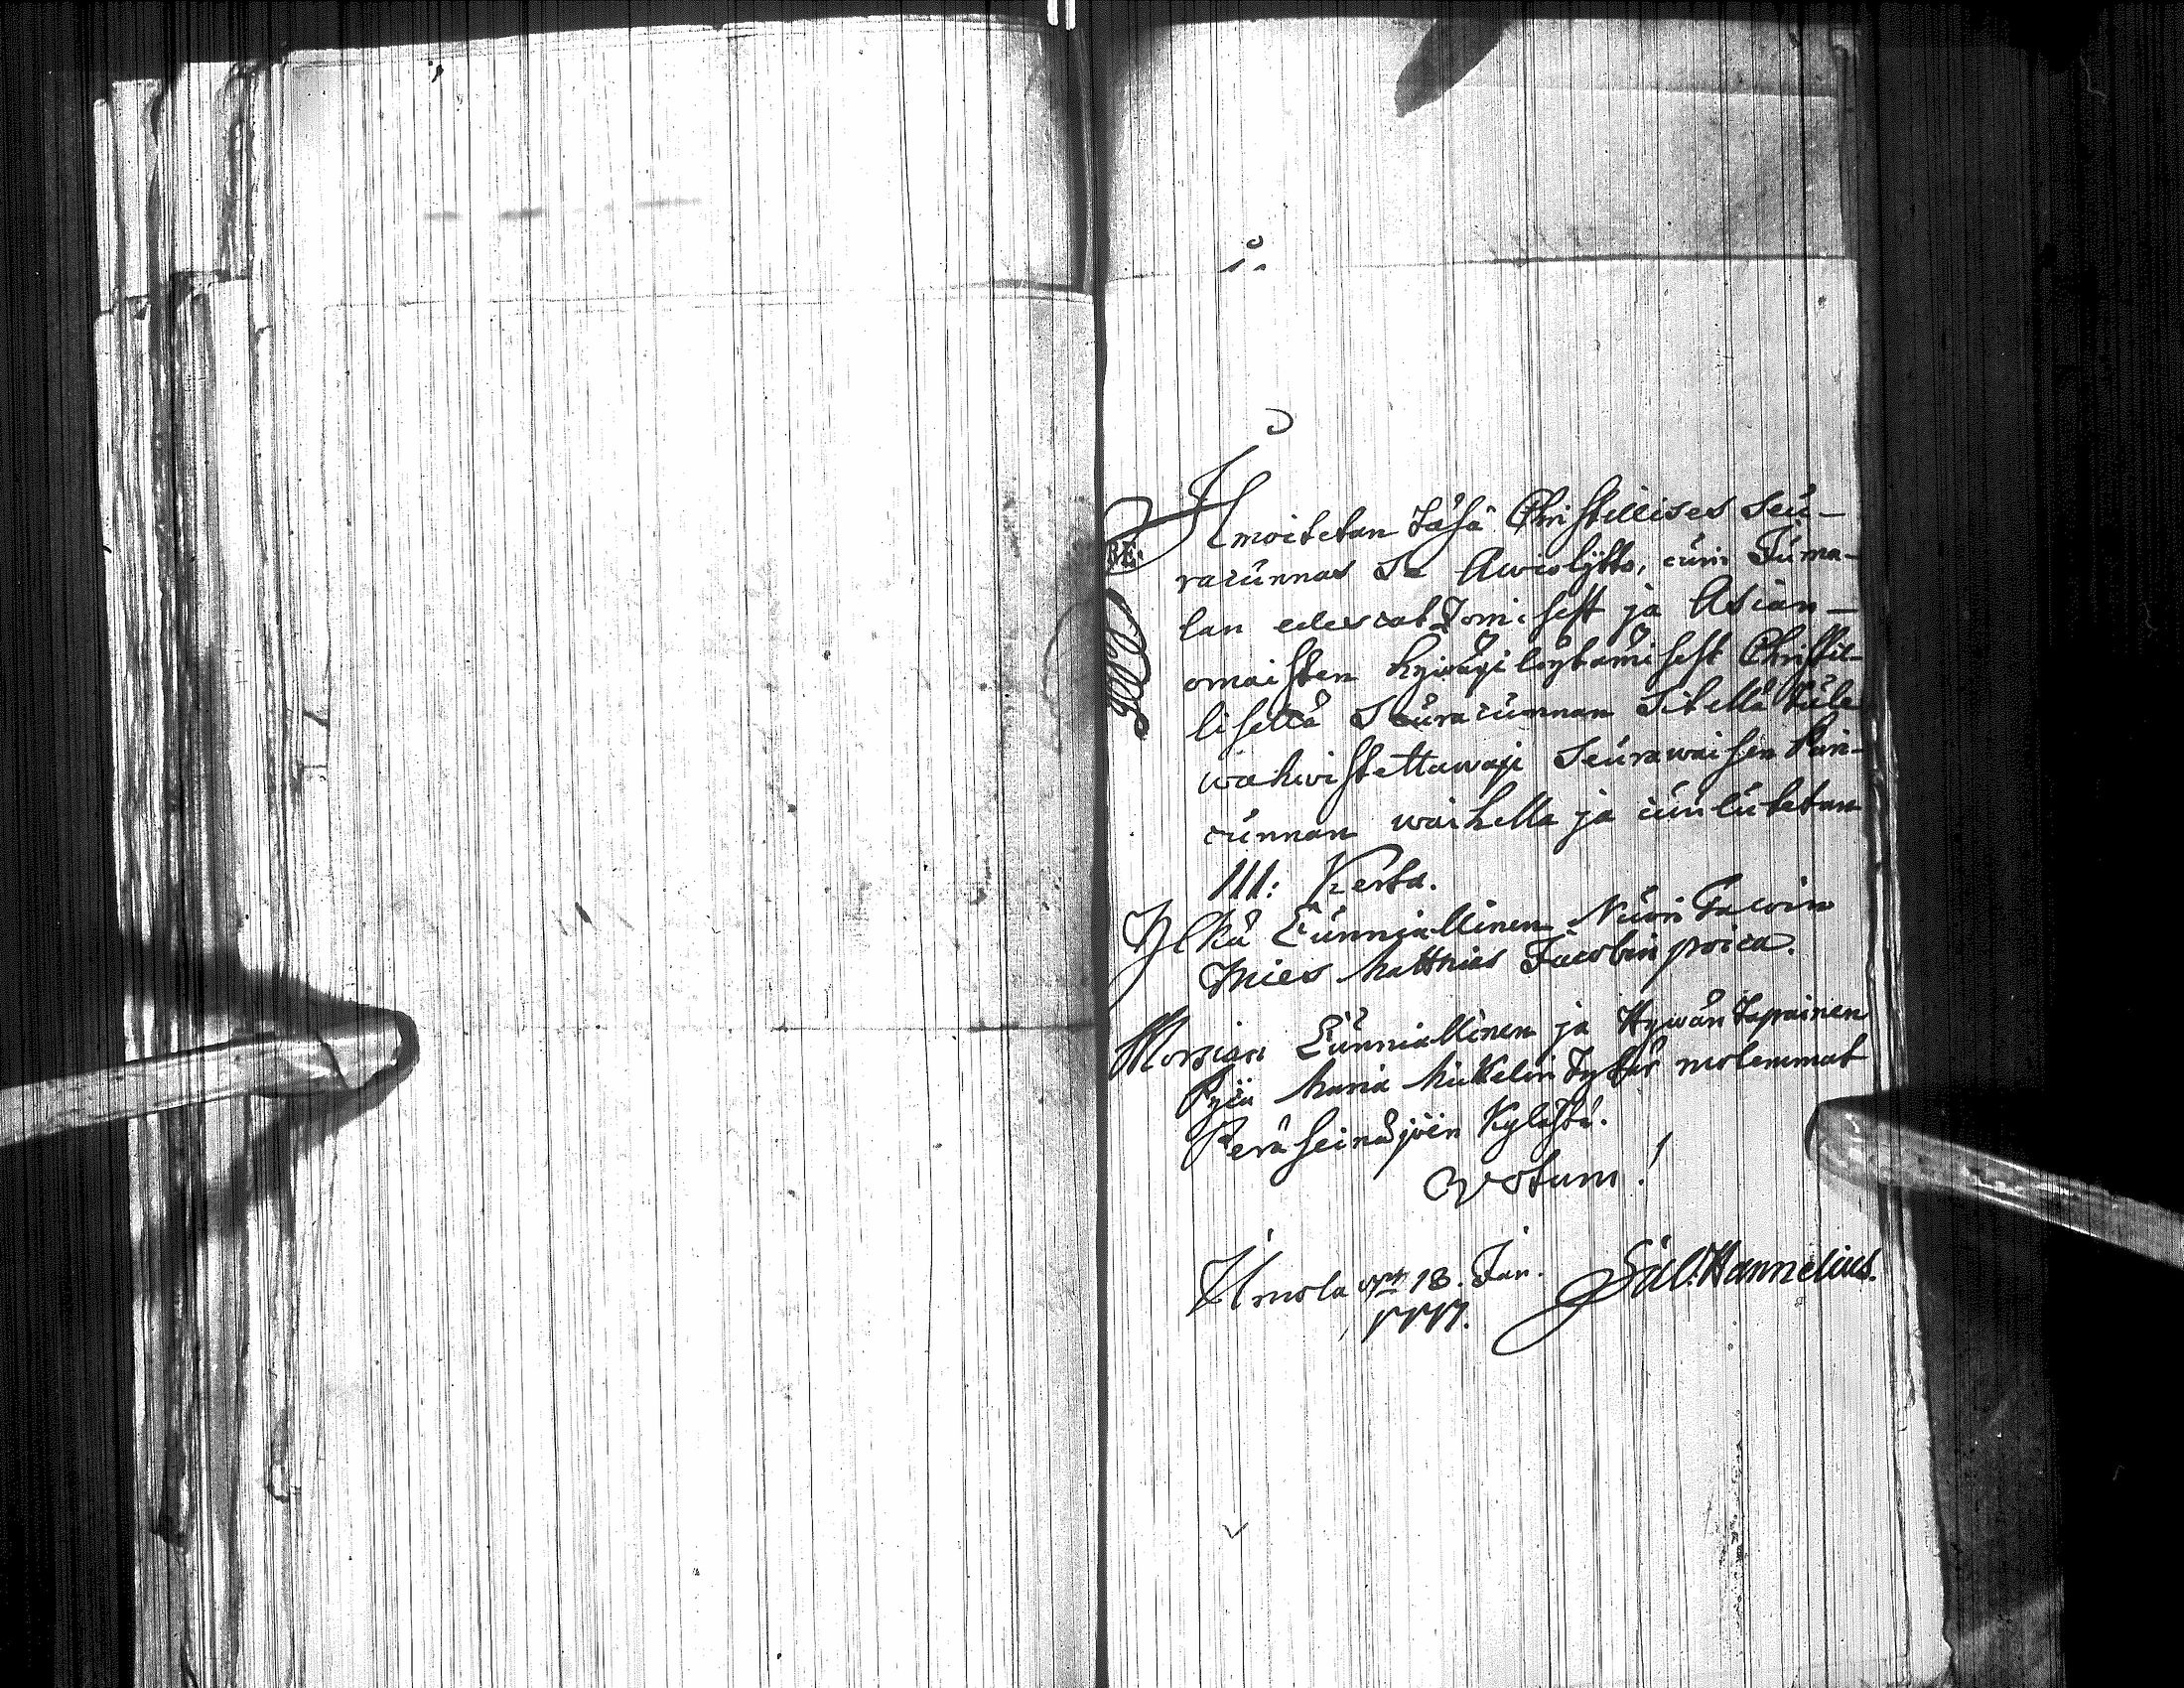 Ilmoitetan täsä Christillises Seu-
racunnas Se Awioljtto, cuin Juma-
lan edescatzomisest ja Asian-
omaisten hywäxi löytämisest Christil-
lisellä Seuracunnan Siteellä tule
wahwistettawaxi Seurawaisen Paris-
cunnan waihella ja cuulutetan
III: Kerta.
Ylkä Cunniallinen Nuori
Mies Matthias Jacobin poica.
Morsian Cunniallinen ja Hywän tapainen
Pijca Maria Mickelin tytär molemmat
Peräseinäjoen Kylästä.
Votum!
Ilmola 13. Jan. Sal. Hannelius.
1777.